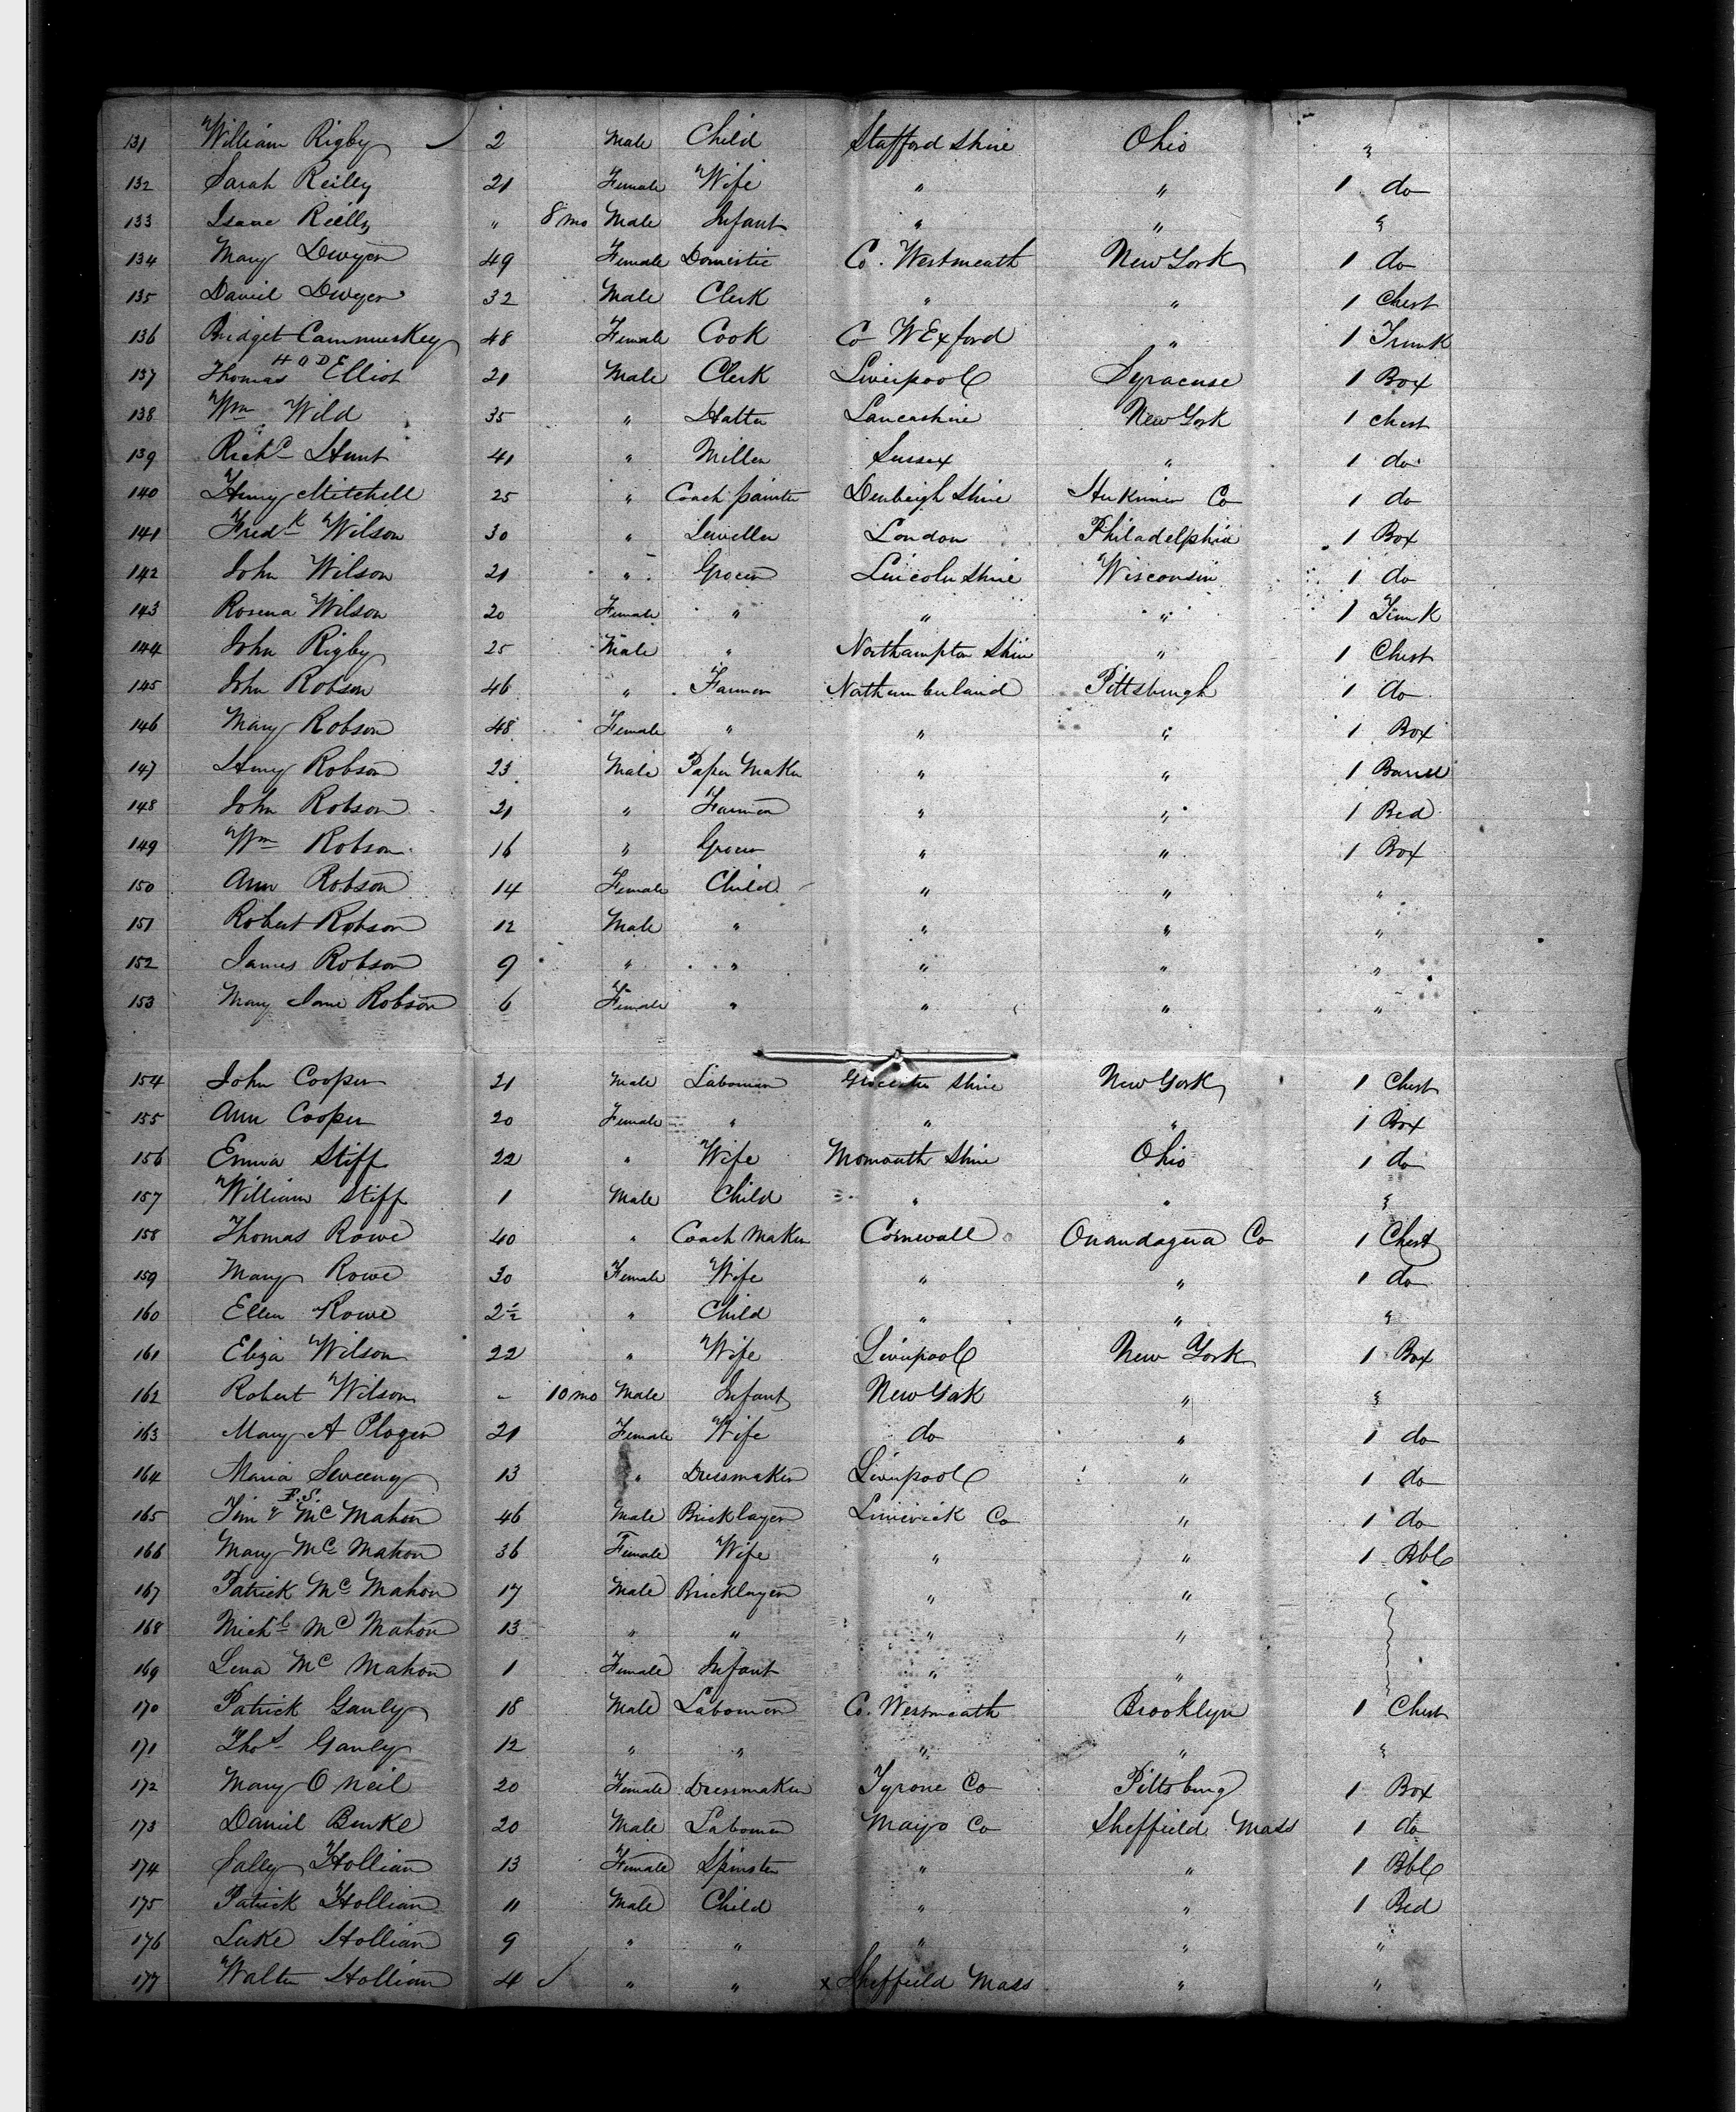 131 William Rigby 2 Male Child Stafford Shire Ohio "
132 Sarah Reiley 21 Female Wife " " 1 do
133 Isaac Reilly " 8 mo Male Infant " " "
134 Mary Dwyer 49 Female Domestic Co. Westmeath New York 1 do
135 David Dwyer 32 Male Clerk " " 1 Chest
136 Bridget Cammuskey 48 Female Cook Co WExford " 1 Trunk
HODE
137 Thomas Elliot 21 Male Clerk Liverpool Syracuse 1 Box
138 Wm Wild 35 " Hatter Lancashire New York 1 chest
139 Richd Hunt 41 " Miller Sussex " 1 do
140 Henry Mitchell 25 " Coach painter Denbeigh Shire Herkimer Co 1 do
141 Fredk Wilson 30 " Jeweller London Philadelphia 1 Box
142 John Wilson 21 " Grocer Lincoln Shire Wisconsin 1 do
143 Rosena Wilson 20 Female " " " 1 Trunk
144 John Rigby 25 Male " Northampton Shire " 1 Chest
145 John Robson 46 " Farmer Nathumberland Pittsburgh 1 do
146 Mary Robson 48 Female " " " 1 Box
147 Henry Robson 23 Male Paper Maker " " 1 Barrel
148 John Robson 21 " Farmer " " 1 Bed
149 Wm Robson 16 " Grocer " " 1 Box
150 Ann Robson 14 Female Child " " "
151 Robert Robson 12 Male " " " "
152 James Robson 9 " " " " "
153 Mary Jane Robson 6 Female " " " "
154 John Cooper 21 Male Labourer Glocester Shire New York 1 Chest
155 Ann Cooper 20 Female " " " 1 Box
156 Emma Stiff 22 " Wife Momouth Shire Ohio 1 do
157 William Stiff 1 Male Child " " "
158 Thomas Rowe 40 " Coach Maker Cornwall Onandagua Co 1 Chest
159 Mary Rowe 30 Female Wife " " 1 do
160 Ellen Rowe 2½ " Child " " "
161 Eliza Wilson 22 " Wife Liverpool New York 1 Box
162 Robert Wilson - 10 mo Male Infant New York " "
163 Mary A Plogen 21 Female Wife do " 1 do
164 Maria Sweeny 13 " Dressmaker Liverpool " 1 do
F.S.
165 Tim McMahon 46 Male Bricklayer Limerick Co " 1 do
166 Mary McMahon 36 Female Wife " " 1 Bbl
167 Patrick McMahon 17 Male Bricklayer " "
168 Michl McMahon 13 " " " "
169 Lena McMahon 1 Female Infant " "
170 Patrick Ganly 18 Male Labourer Co. Westmeath Brooklyn 1 Chest
171 Thos Ganly 12 " " " " "
172 Mary O Neil 20 Female Dressmaker Tyrone Co Pittsburg 1 Box
173 Daniel Burke 20 Male Labourer Mayo Co Sheffield Mass 1 do
174 Sally Hollian 13 Female Spinster " " 1 Bbl
175 Patrick Hollian 11 Male Child " " 1 Bed
176 Luke Hollian 9 " " " " "
177 Walter Hollian 4 " " x Sheffield Mass " "